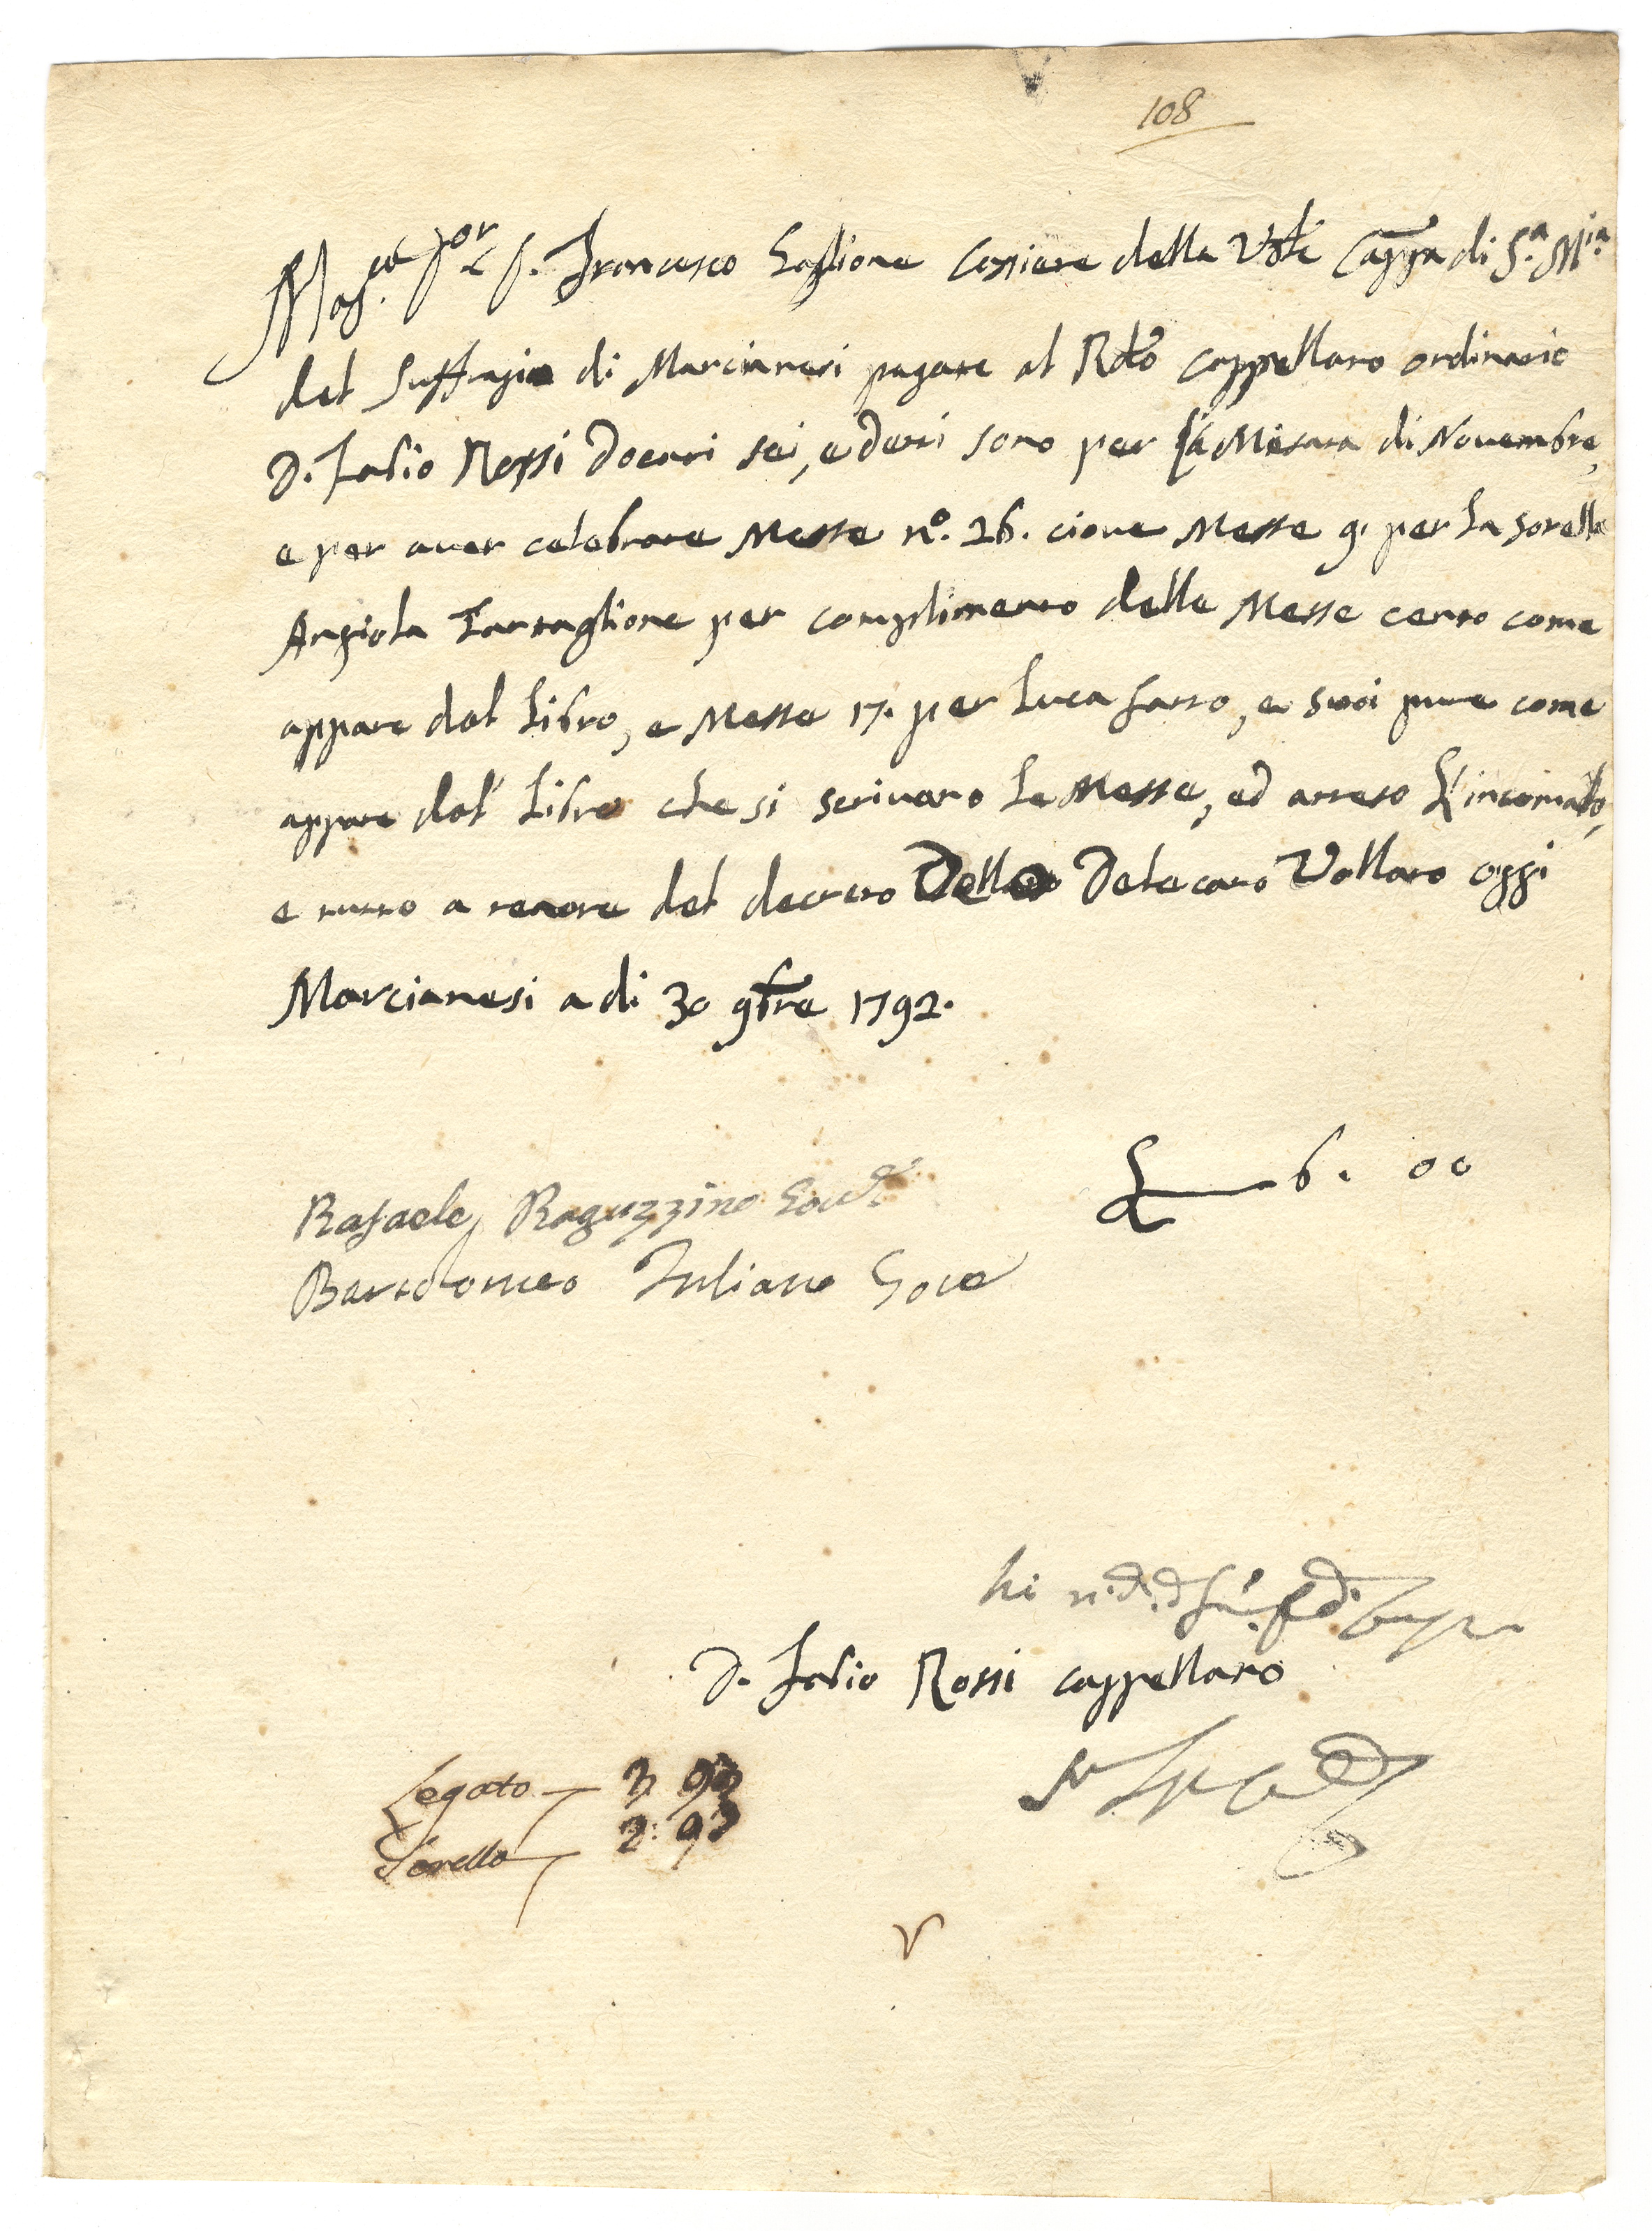 108
Mag.co Sor S. Francesco Gaglione Cassiere della Vble Cappa di S.a M.ia
del Suffragio di Marcianesi pagate al Rdo Cappellano ordinario
D. Fabio Rossi Docati sei, e detti sono per la Mesata di Novembre,
e per aver celebrate Messe n.o 26. cioue Messe 9. per la sorella
Angiola Tartaglione per complimento delle Messe cento come
appare dal Libro, e Messe 17. per Luca Farro, e suoi pure come
appare dal Libro che si scrivano le Messe, ed atteso L'incomodo,
e tutto a tenore del decreto Dello Delecato Vollaro oggi
Marcianesi a di 30 9bre 1792.
6. 00
Rafaele Raguzzino Gov.e
Bartolomeo Iuliano Gove
D. Fabio Rossi Cappellano
Legato 3
Sorella 2: 93